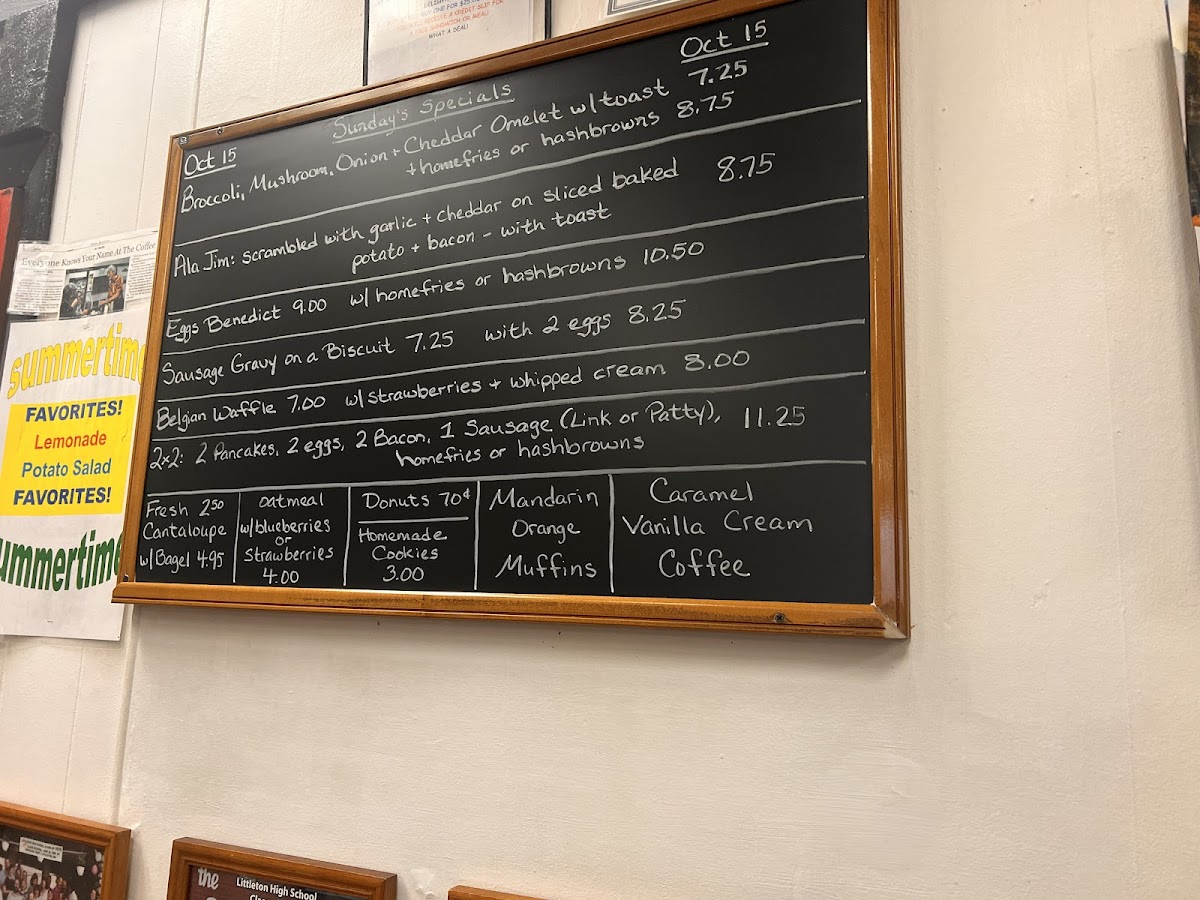 BUY ONE FOR $25.0
WILL RECEIVE A CREDIT SLIP FOR
A FREE SANDWICH OR MEAL!
WHAT A DEAL!
Sunday's Specials
Oct 15
Oct 15
Broccoli, Mushroom, Onion + Cheddar Omelet w/toast 7.25
+ homefries or hashbrowns 8.75
Ala Jim: scrambled with garlic + cheddar on sliced baked 8.75
potato + bacon - with toast
Eggs Benedict 9.00 w/ homefries or hashbrowns 10.50
Sausage Gravy on a Biscuit 7.25 with 2 eggs 8.25
Belgian Waffle 7.00 w/strawberries + whipped cream 8.00
2x2: 2 Pancakes, 2 eggs, 2 Bacon, 1 Sausage (Link or Patty), 11.25
homefries or hashbrowns
Fresh 2.50
Cantaloupe
w/Bagel 4.95
oatmeal
w/blueberries
or
Strawberries
4.00
Donuts 70¢
Homemade
Cookies
3.00
Mandarin
Orange
Muffins
Caramel
Vanilla Cream
Coffee
Everyone Knows Your Name At The Coffee
summertime
FAVORITES!
Lemonade
Potato Salad
FAVORITES!
ummertime
the
Littleton High School